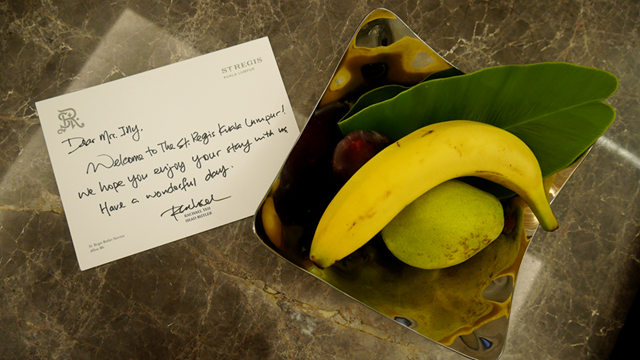 ST REGIS
KUALA LUMPUR
Dear Mrs. Jhy.
Welcome to The St. Regis Kuala Lumpur!
We hope you enjoy your stay with us
Have a wonderful day.
Rachael
RACHAEL TEE
HEAD BUTLER
St. Regis Butler Service